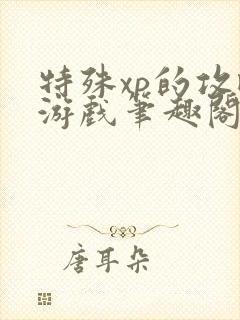 特殊xp的攻
游戏笔趣阁
唐耳朵